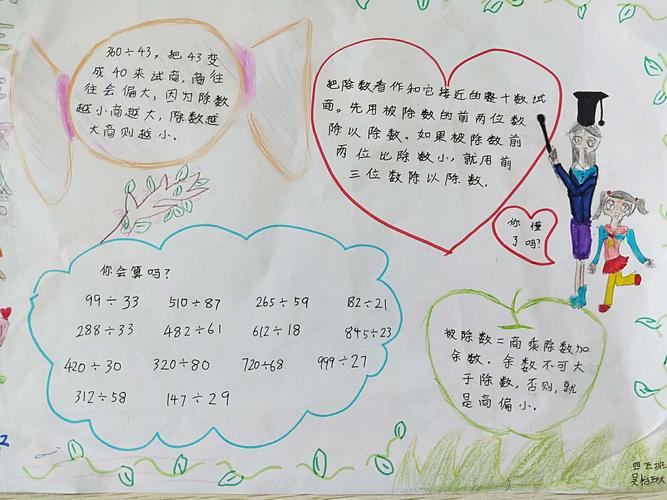 360÷43，把43变
成40来试商，商往
往会偏大，因为除数
越小商越大，除数越
大商则越小．
把除数看作和它接近的整十数试
商。先用被除数的前两位数
除以除数。如果被除数前
两位比除数小，就用前
三位数除以除数．
你懂
了吗？
你会算吗？
99÷33 510÷87 265÷59 82÷21
288÷33 482÷61 612÷18 845÷23
420÷30 320÷80 720÷68 999÷27
312÷58 147÷29
被除数＝商乘除数加
余数．余数不可大
于除数，否则，就
是商偏小．
四五班